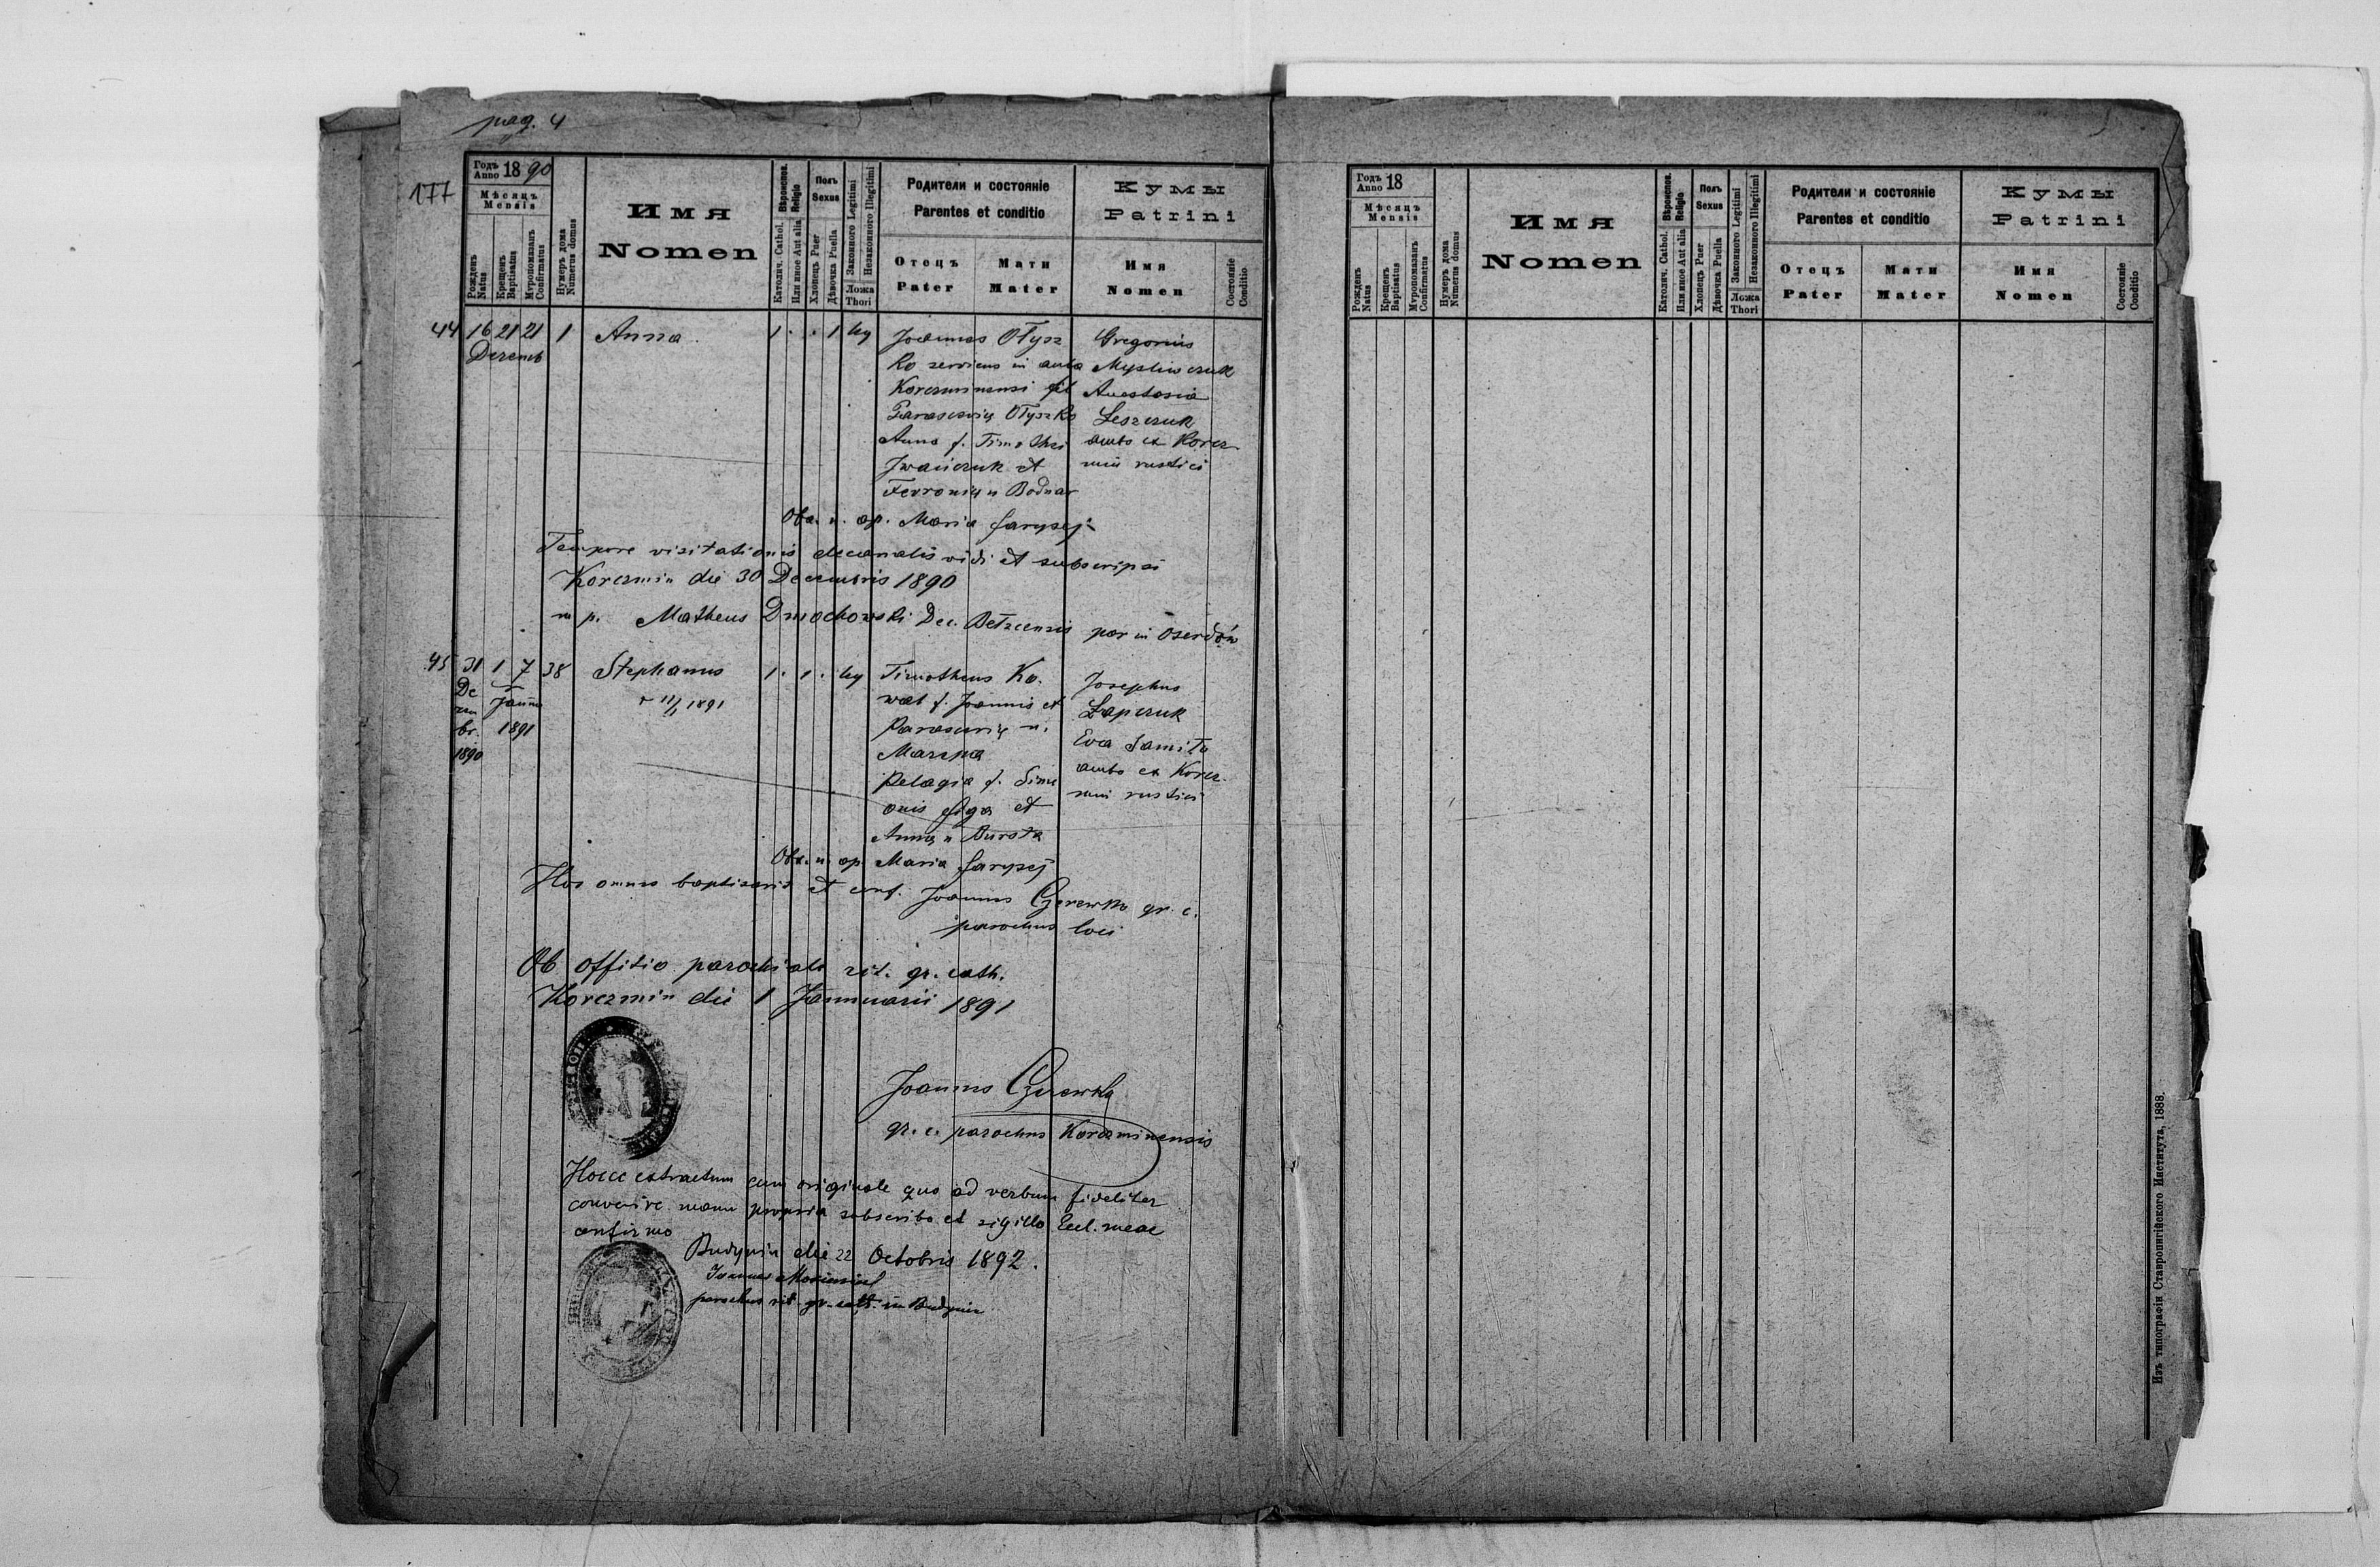 pag. 4
177
Годъ Anno 1890
Мѣсяцъ
Mensis
Рожденъ Natus
Крещенъ Baptisatus
Мѵропомазанъ Confirmatus
Нумеръ дома Numerus domus
Имя
Nomen
Вѣроиспов. Religio
Католич. Cathol.
Или иное Aut alia
Полъ
Sexus
Хлопецъ Puer
Дѣвочка Puella
Законного Legitimi
Незаконного Illegitimi
Ложа
Thori
Родители и состояніе
Parentes et conditio
Отецъ Мати
Pater Mater
Кумы
Patrini
Имя
Nomen
Состояніе Conditio
44 16 21 21 1 Anna 1 . . 1 leg
Decemb
Joannes Ołysz
ko serviens in aula
Korczminensi fil
Parascevię Ołyszko
Anna f. Timothei
Iwańczuk et
Fevronię n Bodnar
Gregorius
Mysliwczuk
Anastasia
Leszczuk
ambo ex Korcz
min rustici
Obs. n. ap. Maria Saryej
Tempore visitationis decanalis vidi et subscripsi
Korczmin die 30 Decembris 1890
m p. Matheus Dmochowski Dec. Bełzensis par in Oserdów
45 31 1 7 38 Stephanus 1 . 1 . leg
De
cem
br.
1890
Januar
1891
+ 11/1 1891
Timotheus Ko.
wal f. Joannis et
Parascevię n.
Marzna
Pelagia f. Sime
onis Giga et
Annę n Bursta
Josephus
Łapczuk
Eva Samiła
ambo ex Korcz.
min rustici
Obs. n. ap. Maria Saryej
Hos omnes baptisavi et conf. Joannes Czerewko gr. c.
parochus loci
Ab offitio parochiale rit. gr. cath.
Korczmin die 1 Jannuarii 1891
Joannes Czerewko
gr. c. parochus Korczminensis
Hocce extractum cum originale quo ad verbum fideliter
convenire manu propria subscribo et sigillo Eccl. meae
confirmo
Budynin die 22 Octobris 1892.
Joannes
parochus rit. gr. cath. in Budynin
Годъ Anno 18
Мѣсяцъ
Mensis
Рожденъ Natus
Крещенъ Baptisatus
Мѵропомазанъ Confirmatus
Нумеръ дома Numerus domus
Имя
Nomen
Вѣроиспов. Religio
Католич. Cathol.
Или иное Aut alia
Полъ
Sexus
Хлопецъ Puer
Дѣвочка Puella
Законного Legitimi
Незаконного Illegitimi
Ложа
Thori
Родители и состояніе
Parentes et conditio
Отецъ Мати
Pater Mater
Кумы
Patrini
Имя
Nomen
Состояніе Conditio
Изъ типографіи Ставропигійского Института, 1888.